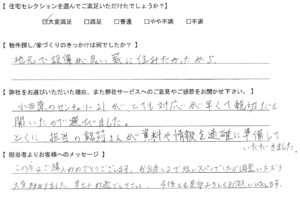 【 住宅セレクションを選んでご満足いただけたでしょうか? 】
☑大変満足 □満足 □普通 □やや不満 □不満
【 物件探し/家づくりのきっかけは何でしたか? 】
地元で設備が良い家に住みたかったから
【 弊社をお選びいただいた理由、また弊社サービスへのご意見やご感想をお聞かせ下さい。 】
小田原のセンチュリー21がとても対応が早くて親切だと
聞いたので選びました。
とくに、担当の鈴村さんが資料や情報を適確に準備して
いただきました。
【 担当者よりお客様へのメッセージ 】
この度はご購入おめでとうございます。お引渡しまで短いスパンでしたが調整いただき
大変助かりました。
今後とも宜しくお願いいたします。